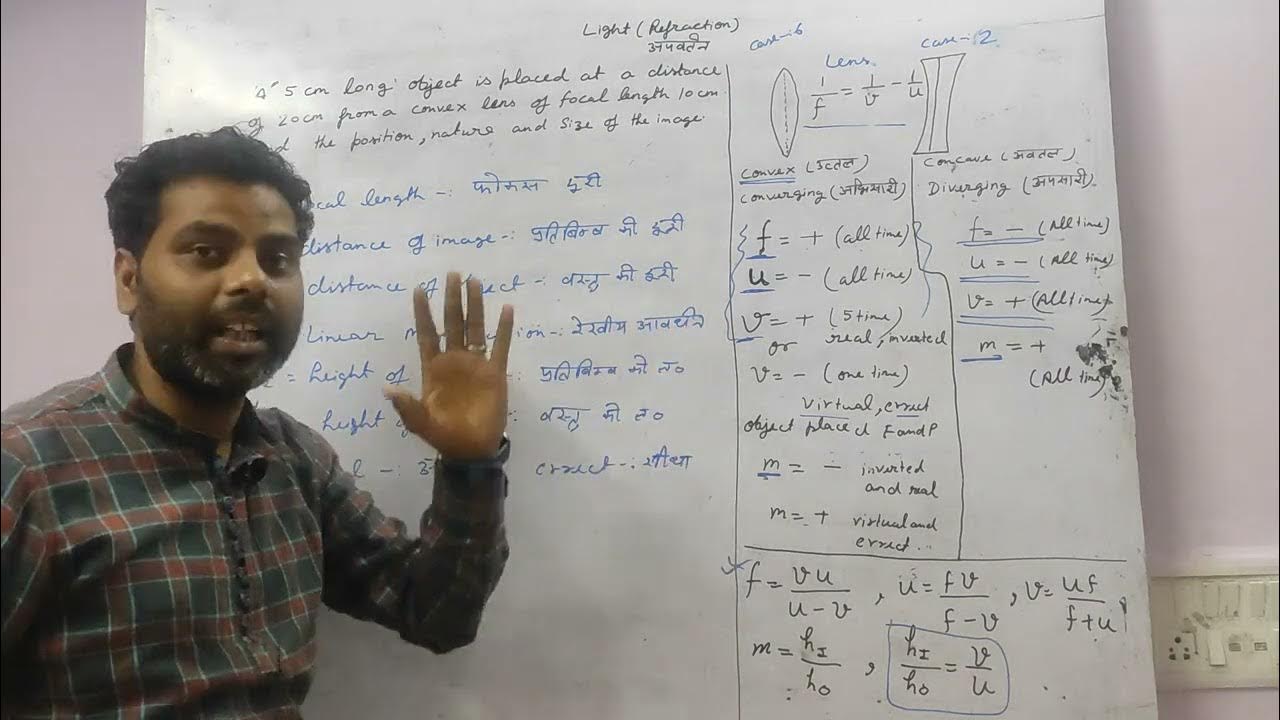 Light (Refraction)
अपवर्तन
"A" 5 cm long object is placed at a distance
of 20 cm from a convex lens of focal length 10 cm
the position, nature and size of the image.
length -: फोकस दूरी
distance of image -: प्रतिबिम्ब की दूरी
distance of -: वस्तु की दूरी
Linear -: रेखीय आवर्धन
= height of : प्रतिबिम्ब की ल०
height : वस्तु की ल०
-: errect -: सीधा
case-: 1
case-: 2
Lens.
1/f = 1/v - 1/u
convex (उत्तल)
converging (अभिसारी)
f = + (all time)
u = - (all time)
v = + (5 time)
or real, inverted
v = - (one time)
virtual, errect
object placed F and P
m = - inverted
and real
m = + virtual and
errect..
Concave (अवतल)
Diverging (अपसारी)
f = - (All time)
u = - (All time)
v = + (All time)
m = +
(All time)
f = vu/u-v , u = fv/f-v , v = uf/f+u
m = hI/hO , hI/hO = v/u